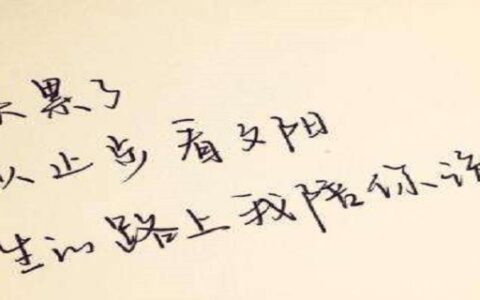 累了
止步看夕阳
生的路上我陪你